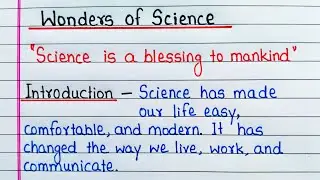 Wonders of Science
"Science is a blessing to mankind"
Introduction – Science has made
our life easy,
comfortable, and modern. It has
changed the way we live, work, and
communicate.